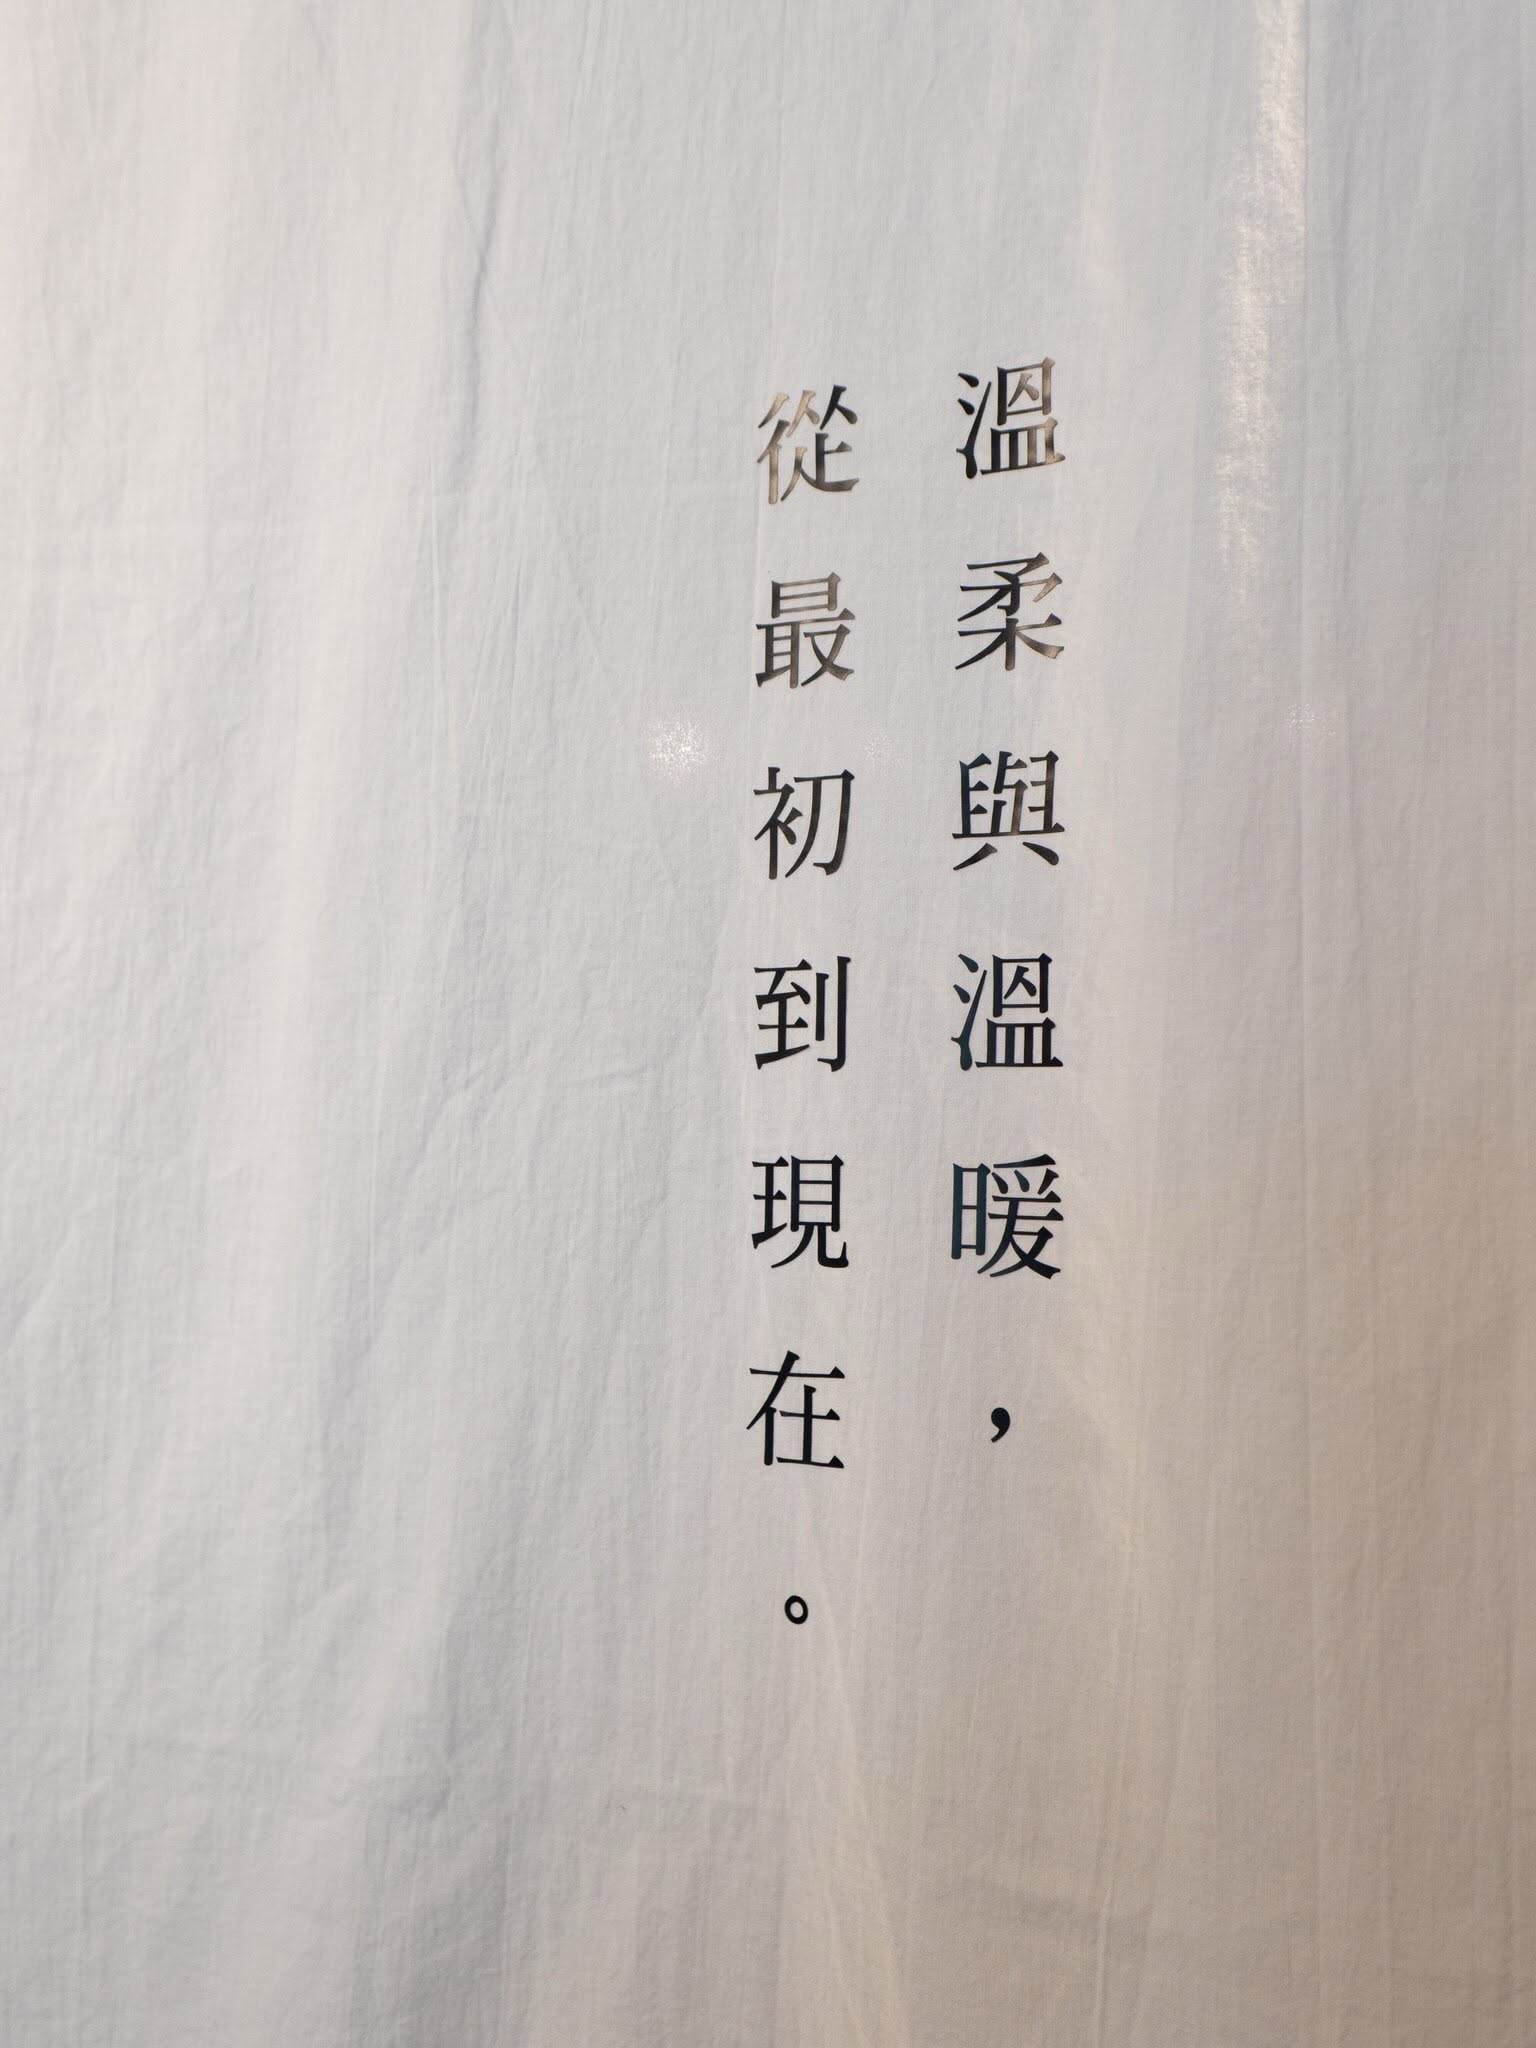 溫柔與溫暖，
從最初到現在。